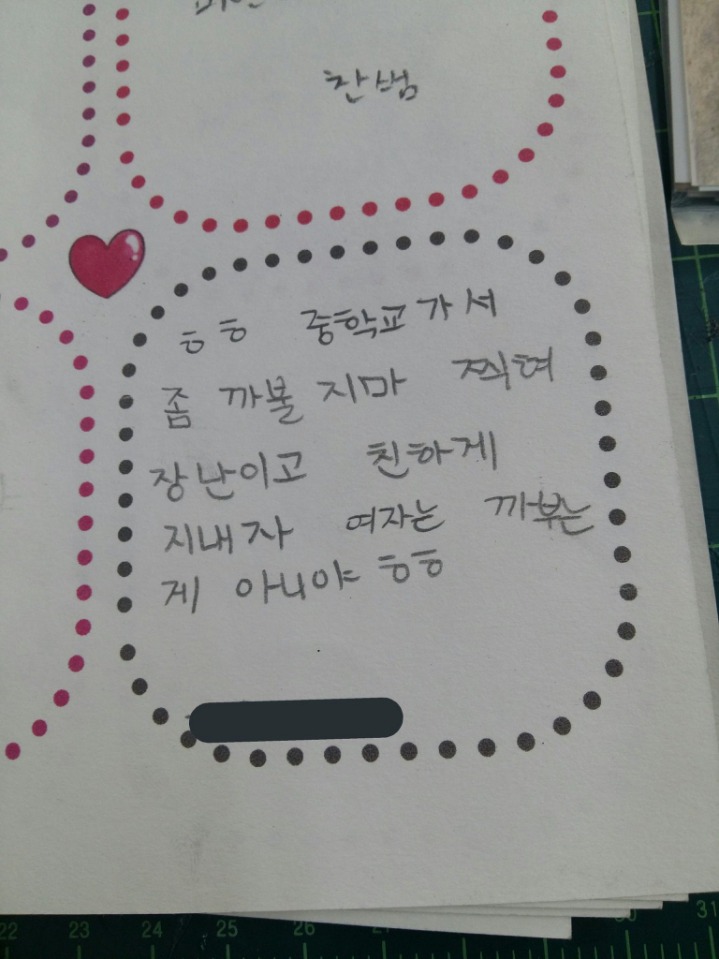 찬범
ㅎㅎ 중학교가서
좀 까불지마 찍혀
장난이고 친하게
지내자 여자는 까부는
게 아니야 ㅎㅎ
22 23 24 25 26 30 31